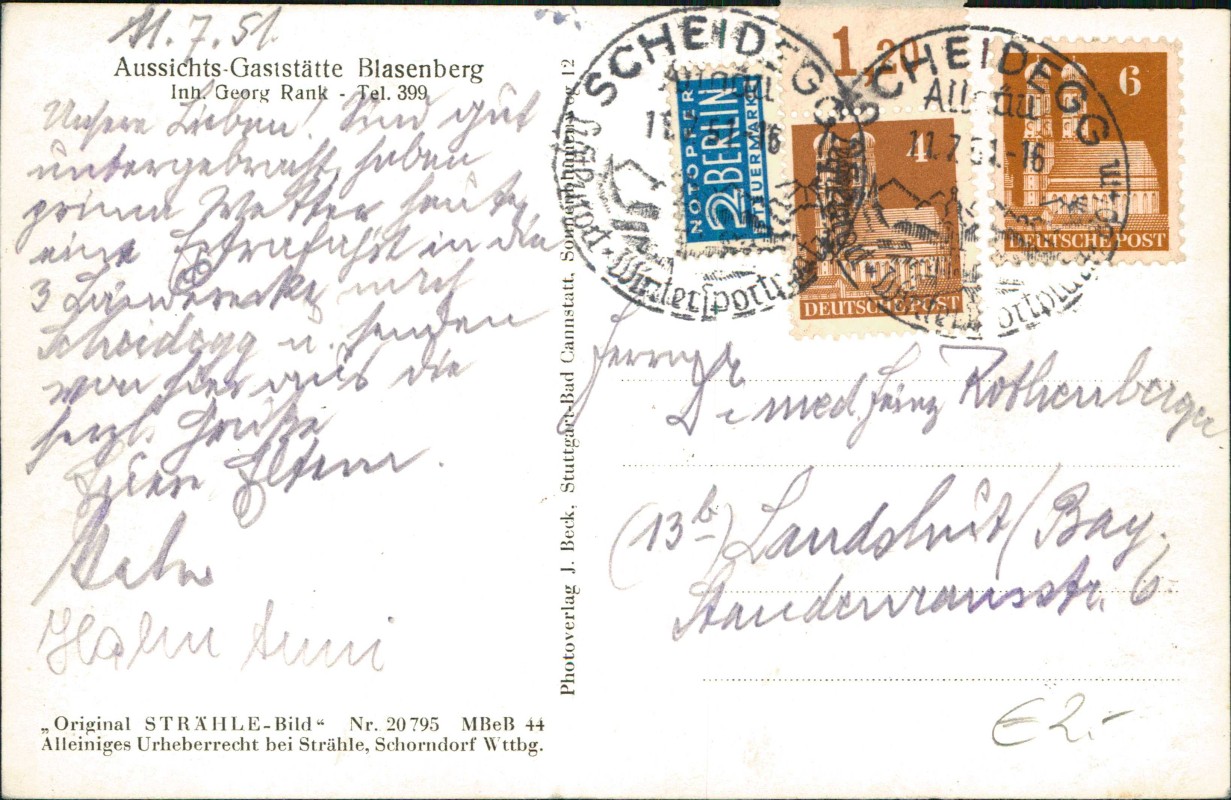 11.7.51.
Aussichts-Gaststätte Blasenberg
Inh. Georg Rank - Tel. 399
Unsere Lieben! Sind gut
untergebracht, haben
prima Wetter, heute,
eine Extrafahrt in die
3 Länderecke nach
Scheidegg u. senden
von hier aus die
herzl. Grüße
Eure Eltern.
Halm Anni
„Original STRÄHLE-Bild“ Nr. 20795 MBeB 44
Alleiniges Urheberrecht bei Strähle, Schorndorf Wttbg.
Photoverlag J. Beck, Stuttgart-Bad Cannstatt, Sonnenbühlweg 12
SCHEIDEGG
Allgäu
11.7.51.-16
NOTOPFER
2 BERLIN
STEUERMARKE
1.20
4
DEUTSCHE POST
SCHEIDEGG
Allgäu
11.7.51.-16
6
DEUTSCHE POST
Herrn
Dr med. Heinz Rothenberger
(13b) Landshut/Bay.
6
€2.-